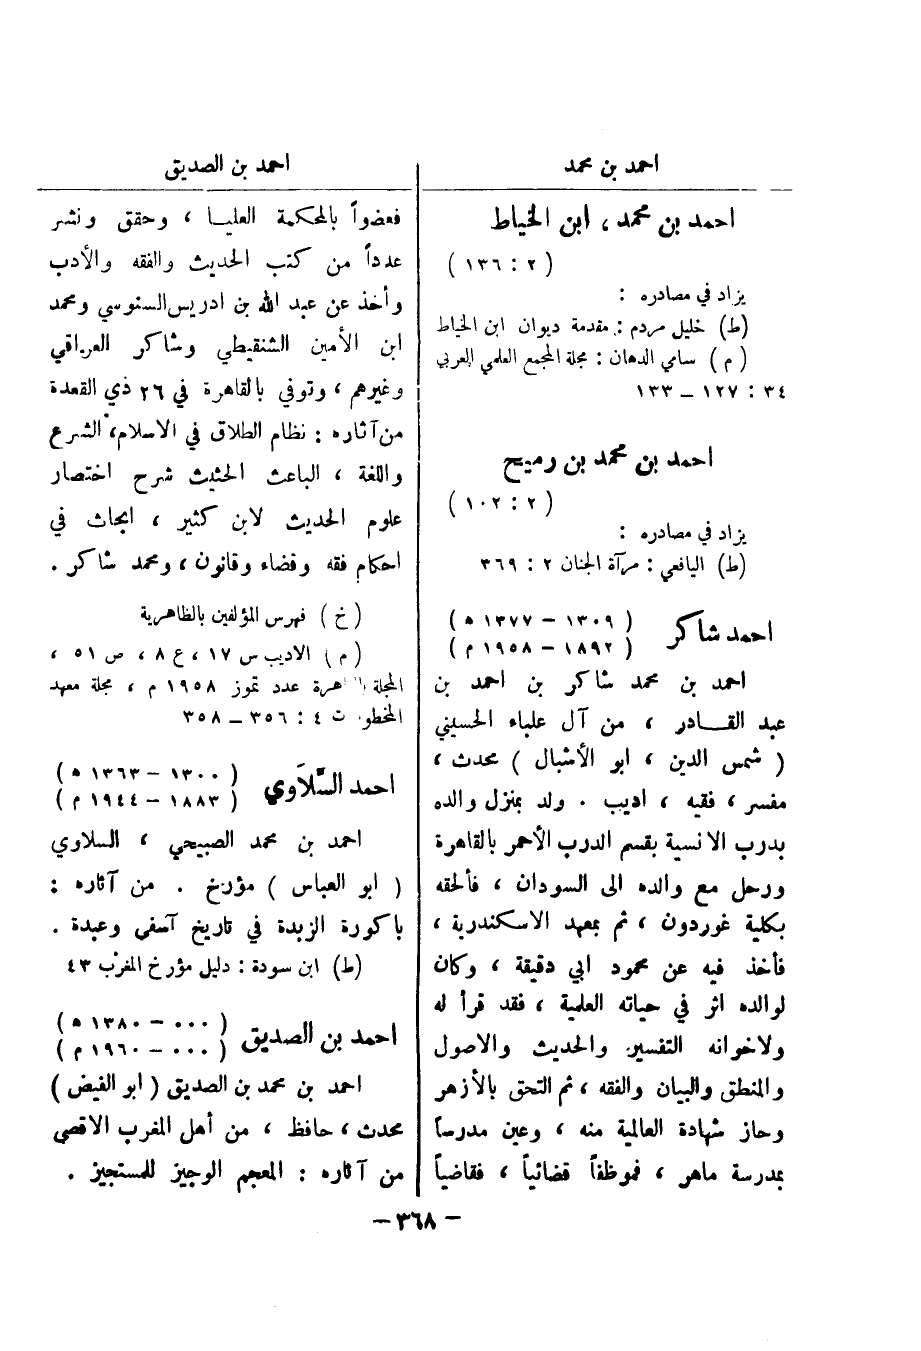 احمد بن محمد
احمد بن محمد ، ابن الخياط
( ٢ : ١٣٦ )
يزاد في مصادره :
(ط) خليل مردم : مقدمة ديوان ابن الخياط
( م ) سامي الدهان : مجلة المجمع العلمي العربي
٣٤ : ١٢٧ – ١٣٣
احمد بن محمد بن رميح
( ٢ : ١٠٢ )
يزاد في مصادره :
(ط) اليافعي : مرآة الجنان ٢ : ٣٦٩
احمد شاكر ( ١٣٠٩ – ١٣٧٧ ه )
( ١٨٩٢ – ١٩٥٨ م )
احمد بن محمد شاكر بن احمد بن
عبد القادر ، من آل علباء الحسيني
( شمس الدين ، ابو الأشبال ) محدث ،
مفسر ، فقيه ، اديب . ولد بمنزل والده
بدرب الانسية بقسم الدرب الأحمر بالقاهرة
ورحل مع والده الى السودان ، فألحقه
بكلية غوردون ، ثم بمعهد الاسكندرية ،
فأخذ فيه عن محمود ابي دقيقة ، وكان
لوالده اثر في حياته العلمية ، فقد قرأ له
ولاخوانه التفسير والحديث والاصول
والمنطق والبيان والفقه ، ثم التحق بالأزهر
وحاز شهادة العالمية منه ، وعين مدرساً
بمدرسة ماهر ، فموظفاً قضائياً ، فقاضياً
احمد بن الصديق
فعضواً بالمحكمة العليا ، وحقق ونشر
عدداً من كتب الحديث والفقه والأدب
وأخذ عن عبد الله بن ادريس السنوسي ومحمد
ابن الأمين الشنقيطي وشاكر العراقي
وغيرهم ، وتوفي بالقاهرة في ٢٦ ذي القعدة
من آثاره : نظام الطلاق في الاسلام ، الشرع
واللغة ، الباعث الحثيث شرح اختصار
علوم الحديث لابن كثير ، ابحاث في
احكام فقه وقضاء وقانون ، ومحمد شاكر .
( خ ) فهرس المؤلفين بالظاهرية
( م ) الاديب س ١٧ ، ع ٨ ، ص ٥١ ،
المجلة عدد تموز ١٩٥٨ م ، مجلة معهد
المخطوطات ٤ : ٣٥٦ – ٣٥٨
احمد السَّلاوي ( ١٣٠٠ – ١٣٦٣ ه )
( ١٨٨٣ – ١٩٤٤ م )
احمد بن محمد الصبيحي ، السلاوي
( ابو العباس ) مؤرخ . من آثاره :
باكورة الزبدة في تاريخ آسفي وعبدة .
(ط) ابن سودة : دليل مؤرخ المغرب ٤٣
احمد بن الصديق ( ٠٠٠ – ١٣٨٠ ه )
( ٠٠٠ – ١٩٦٠ م )
احمد بن محمد بن الصديق ( ابو الفيض )
محدث ، حافظ ، من أهل المغرب الاقصى
من آثاره : المعجم الوجيز للمستجيز .
– ٣٦٨ –